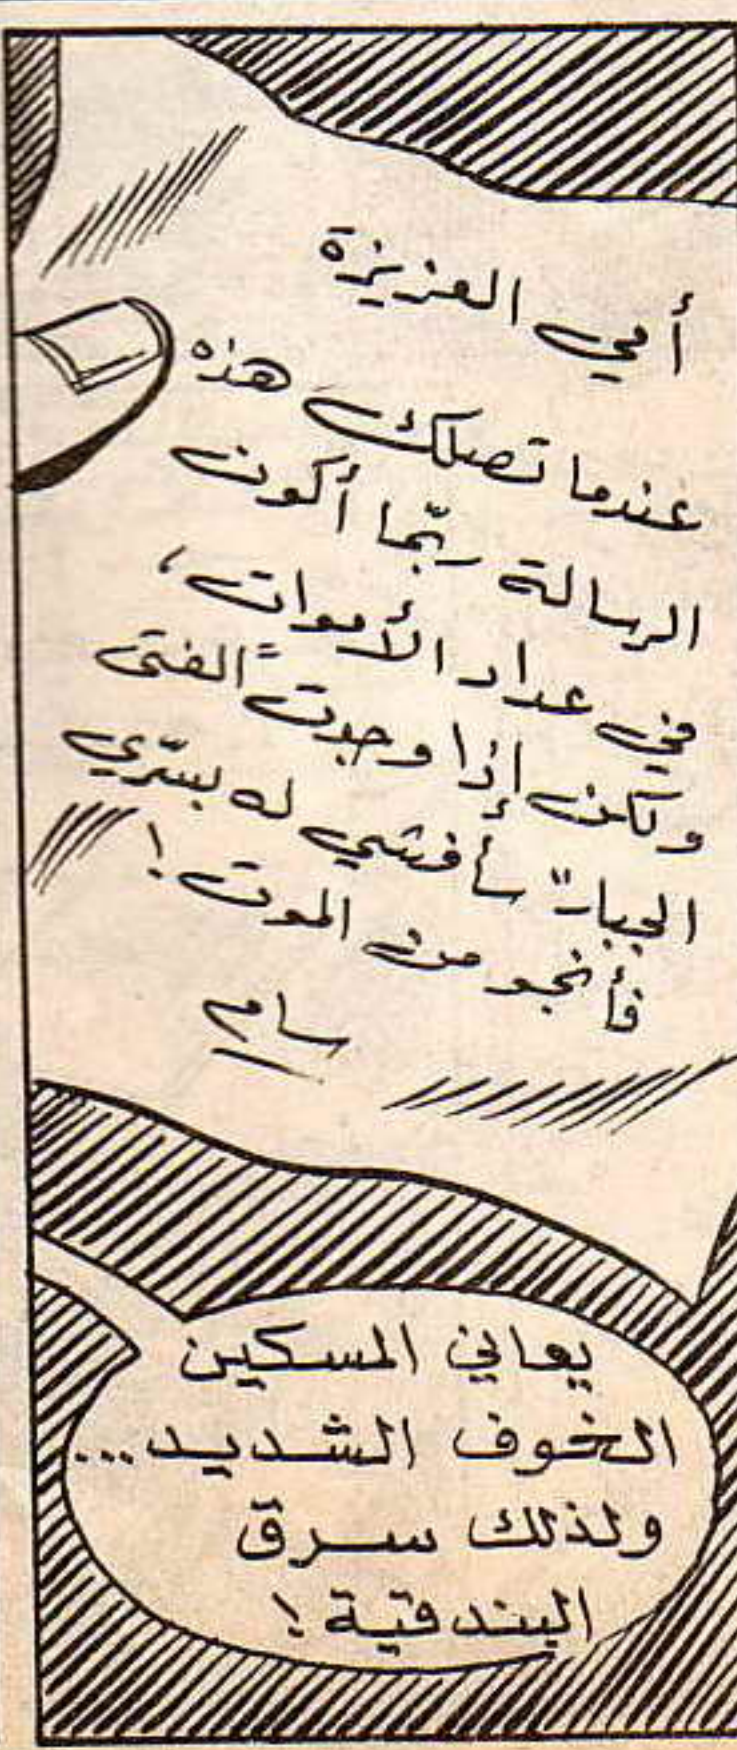 أمي العزيزة
عندما تصلك هذه
الرسالة ربّما أكون
في عداد الأموات،
ولكن إذا وجدت "الفتى
الجبار" سأفشي له بسّري
فأنجو من الموت!
سام
يعاني المسكين
الخوف الشديد...
ولذلك سرق
البندقية!